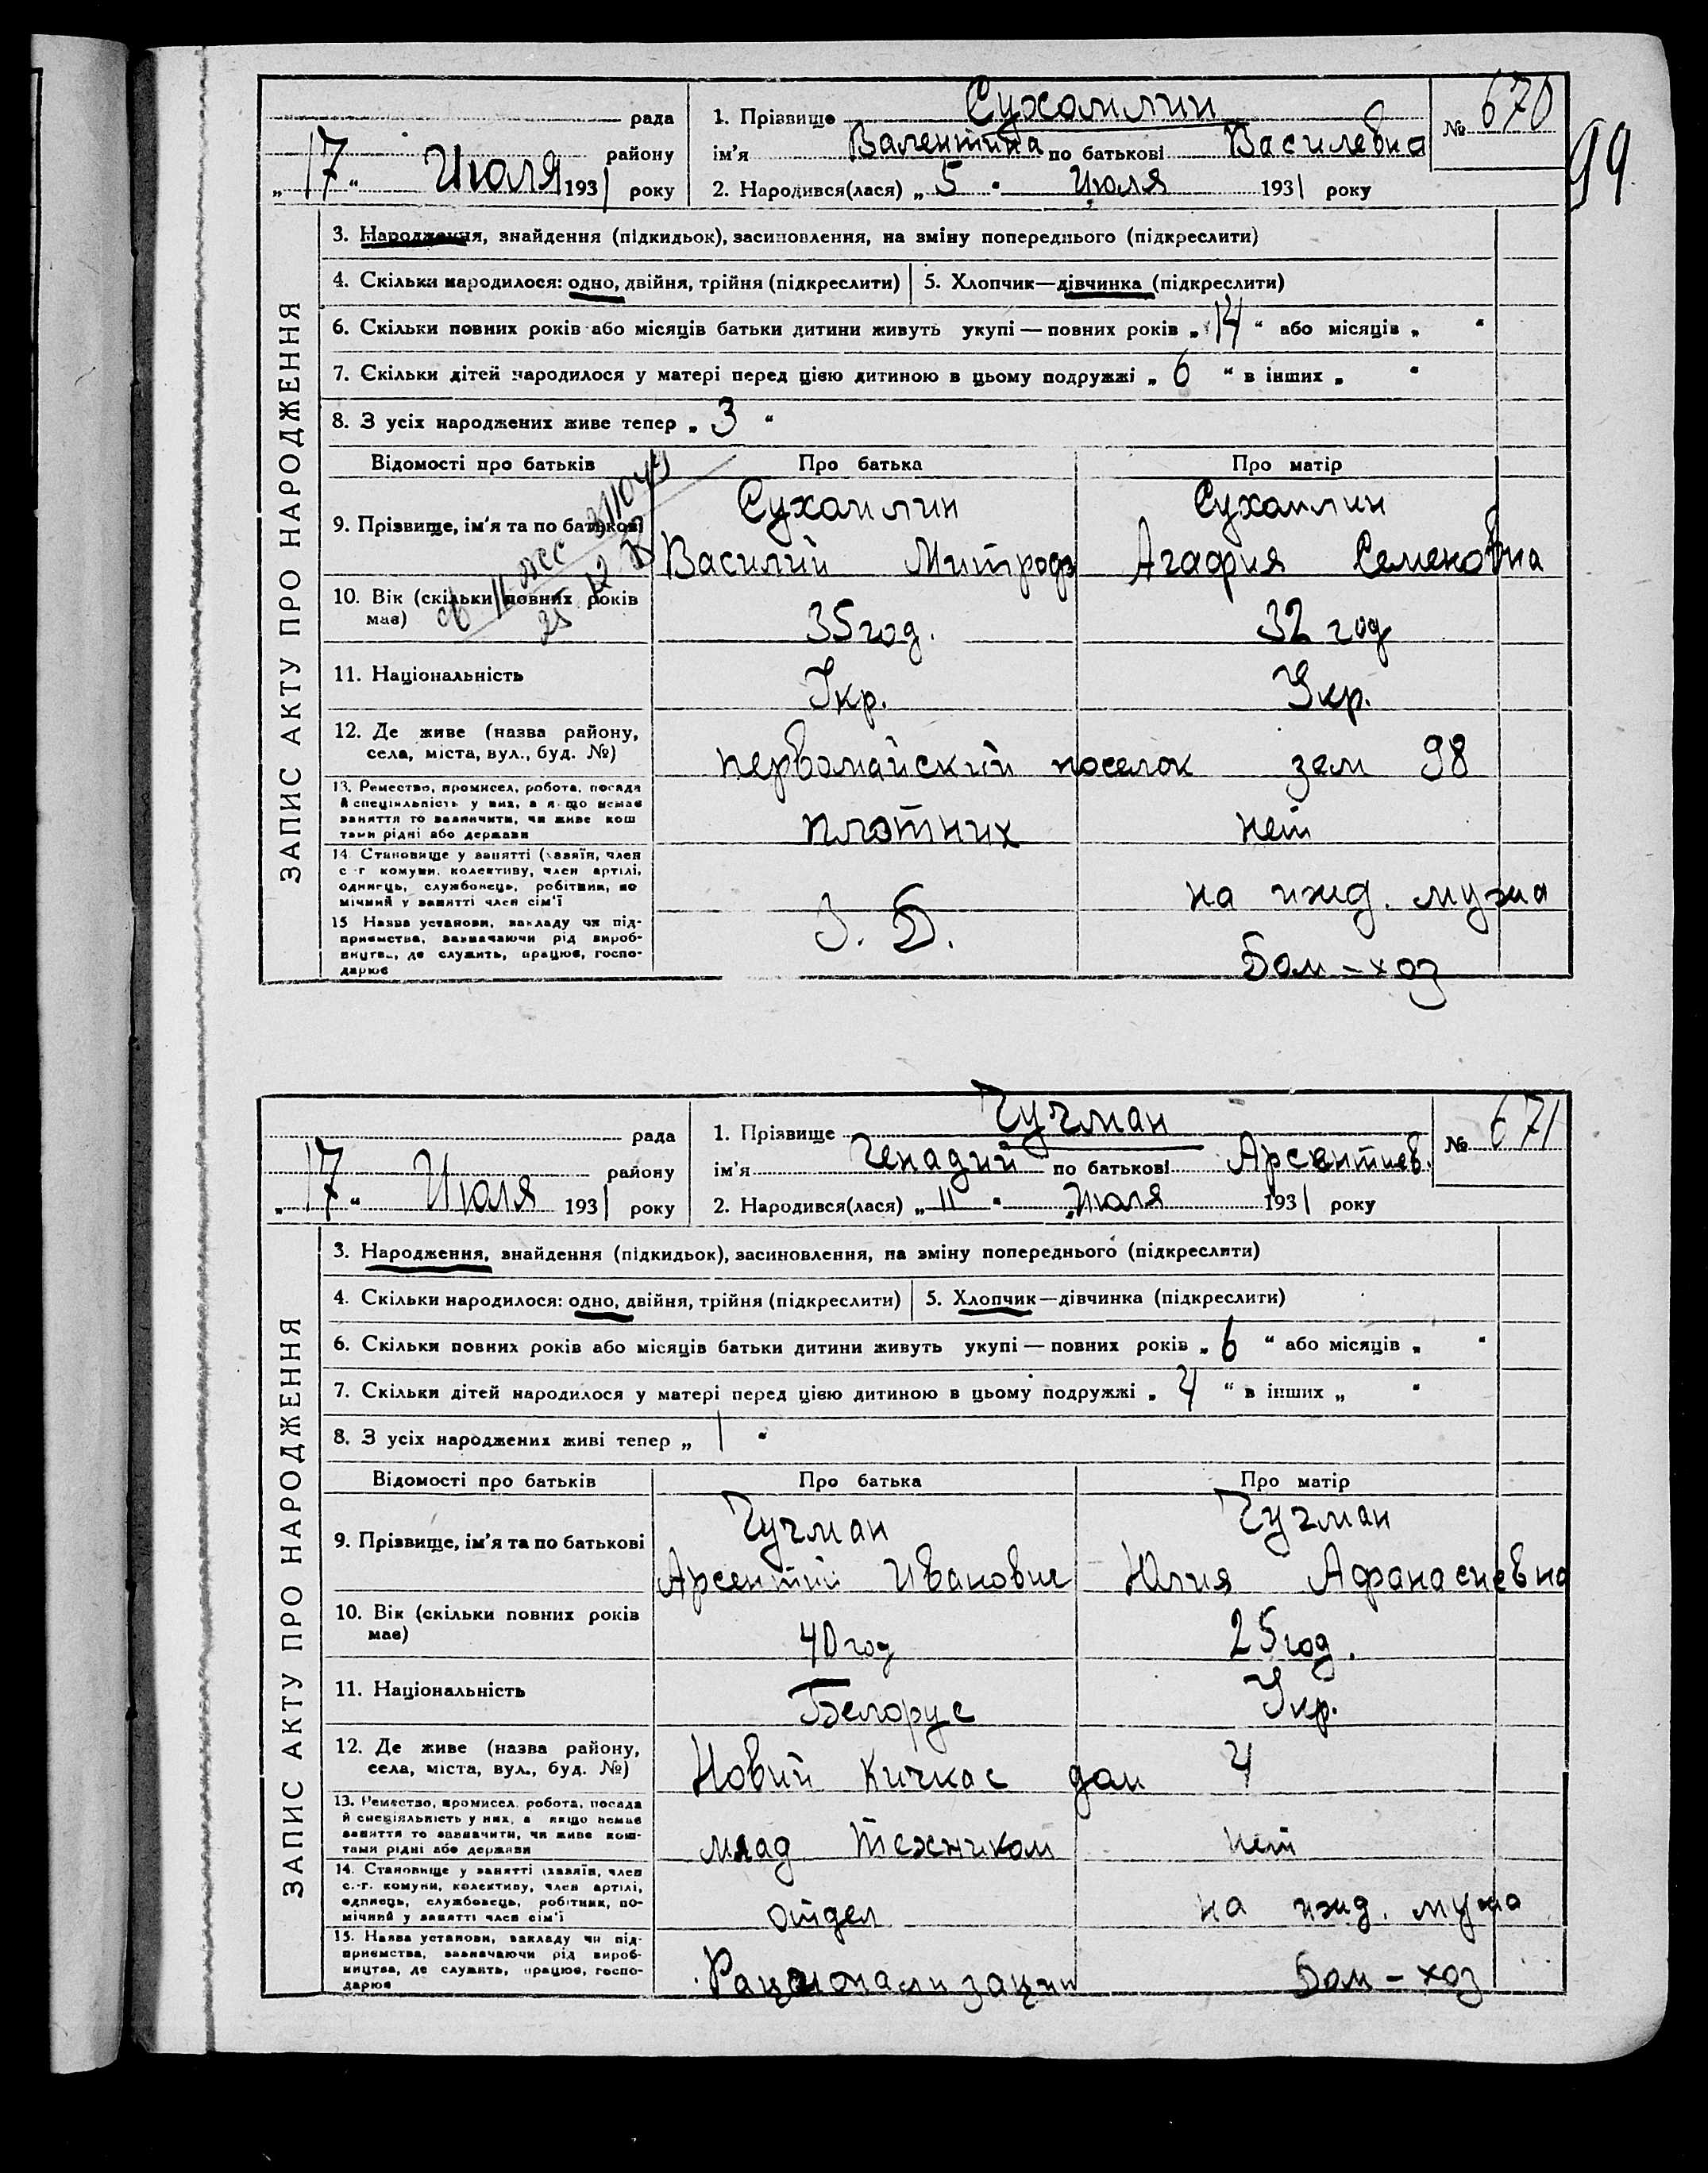 99
рада
району
„17“ Июля 1931 року
1. Прізвище Сухомлин
ім'я Валентина по батькові Василевна
2. Народився(лася) „5“ Июля 1931 року
№ 670
ЗАПИС АКТУ ПРО НАРОДЖЕННЯ
3. Народження, знайдення (підкидьок), засиновлення, на зміну попереднього (підкреслити)
4. Скільки народилося: одно, двійня, трійня (підкреслити) 5. Хлопчик—дівчинка (підкреслити)
6. Скільки повних років або місяців батьки дитини живуть укупі — повних років „14“ або місяців „ “
7. Скільки дітей народилося у матері перед цією дитиною в цьому подружжі „6“ в інших „ “
8. З усіх народжених живе тепер „3“
Відомості про батьків Про батька Про матір
9. Прізвище, ім'я та по батькові
Сухомлин Сухомлин
Василий Митроф Агафия Семеновна
10. Вік (скільки повних років має) 35 год. 32 год
11. Національність Укр. Укр.
12. Де живе (назва району, села, міста, вул., буд. №) первомайский поселок зем 98
13. Ремество, промисел, робота, посада
й спеціяльність у них, а якщо немає
заняття то зазначити, чи живе кош
тами рідні або держави
плотних нет
14. Становище у занятті (хазяїн, член
с.-г. комуни, колективу, член артілі,
одинець, службовець, робітник, по
мічний у занятті член сім'ї
на ижд. мужа
15 Назва установи, закладу чи під-
приємства, зазначаючи рід вироб-
ництва, де служить, працює, госпо-
дарює
З. Б. Дом-хоз
рада
району
„17“ Июля 1931 року
1. Прізвище Гучман
ім'я Генадий по батькові Арсентиев.
2. Народився(лася) „11“ Июля 1931 року
№ 671
ЗАПИС АКТУ ПРО НАРОДЖЕННЯ
3. Народження, знайдення (підкидьок), засиновлення, на зміну попереднього (підкреслити)
4. Скільки народилося: одно, двійня, трійня (підкреслити) 5. Хлопчик—дівчинка (підкреслити)
6. Скільки повних років або місяців батьки дитини живуть укупі — повних років „6“ або місяців „ “
7. Скільки дітей народилося у матері перед цією дитиною в цьому подружжі „4“ в інших „ “
8. З усіх народжених живі тепер „1“
Відомості про батьків Про батька Про матір
9. Прізвище, ім'я та по батькові
Гучман Гучман
Арсентий Иванович Юлия Афанасиевна
10. Вік (скільки повних років має) 40 год 25 год.
11. Національність Белорус Укр.
12. Де живе (назва району, села, міста, вул., буд. №) Новий Кичкас дом 4
13. Ремество, промисел, робота, посада
й спеціяльність у них, а якщо немає
заняття то зазначити, чи живе кош-
тами рідні або держави
млад техником нет
14. Становище у занятті (хазяїн, член
с.-г. комуни, колективу, член артілі,
одинець, службовець, робітник, по-
мічний у занятті член сім'ї
отдел на ижд. мужа
15. Назва установи, закладу чи під-
приємства, зазначаючи рід вироб-
ництва, де служить, працює, госпо-
дарює
Рационализации Дом-хоз